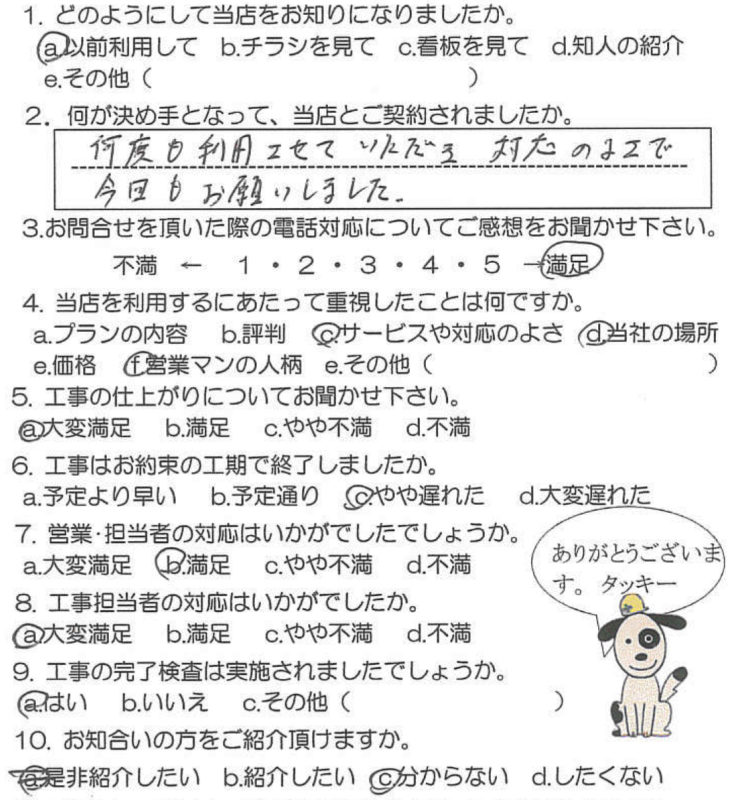 1. どのようにして当店をお知りになりましたか。
a.以前利用して b.チラシを見て c.看板を見て d.知人の紹介
e.その他（ ）
2. 何が決め手となって、当店とご契約されましたか。
何度も利用させていただき 対応のよさで
今回もお願いしました。
3.お問合せを頂いた際の電話対応についてご感想をお聞かせ下さい。
不満 ← 1・2・3・4・5 →満足
4. 当店を利用するにあたって重視したことは何ですか。
a.プランの内容 b.評判 c.サービスや対応のよさ d.当社の場所
e.価格 f.営業マンの人柄 e.その他（ ）
5. 工事の仕上がりについてお聞かせ下さい。
a.大変満足 b.満足 c.やや不満 d.不満
6. 工事はお約束の工期で終了しましたか。
a.予定より早い b.予定通り c.やや遅れた d.大変遅れた
7. 営業・担当者の対応はいかがでしたでしょうか。
a.大変満足 b.満足 c.やや不満 d.不満
ありがとうございま
す。 タッキー
8. 工事担当者の対応はいかがでしたか。
a.大変満足 b.満足 c.やや不満 d.不満
9. 工事の完了検査は実施されましたでしょうか。
a.はい b.いいえ c.その他（ ）
10. お知合いの方をご紹介頂けますか。
a.是非紹介したい b.紹介したい c.分からない d.したくない